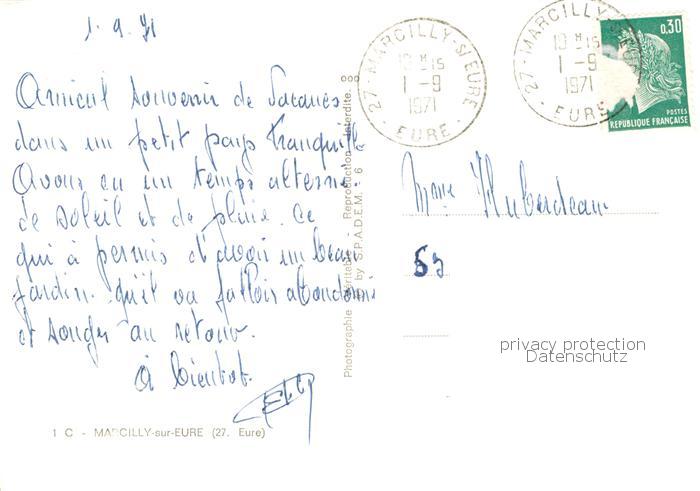 1.9.71
Amical souvenir de Vacances
dans un petit pays tranquille
Avons eu un temps alterné
de soleil et de pluie. Ce
qui à permis d'avoir un beau
jardin. qu'il va falloir abandonner
et songer au retour.
à bientôt.
1 C - MARCILLY-sur-EURE (27. Eure)
Photographie véritable. Reproduction interdite.
by S.P.A.D.E.M. 6
27 - MARCILLY-S/EURE
1 - 9
1971
EURE
27 - MARCILLY-S/EURE
1 - 9
1971
EURE
0,30
POSTES
REPUBLIQUE FRANÇAISE
Mme Huberdeau
privacy protection
Datenschutz